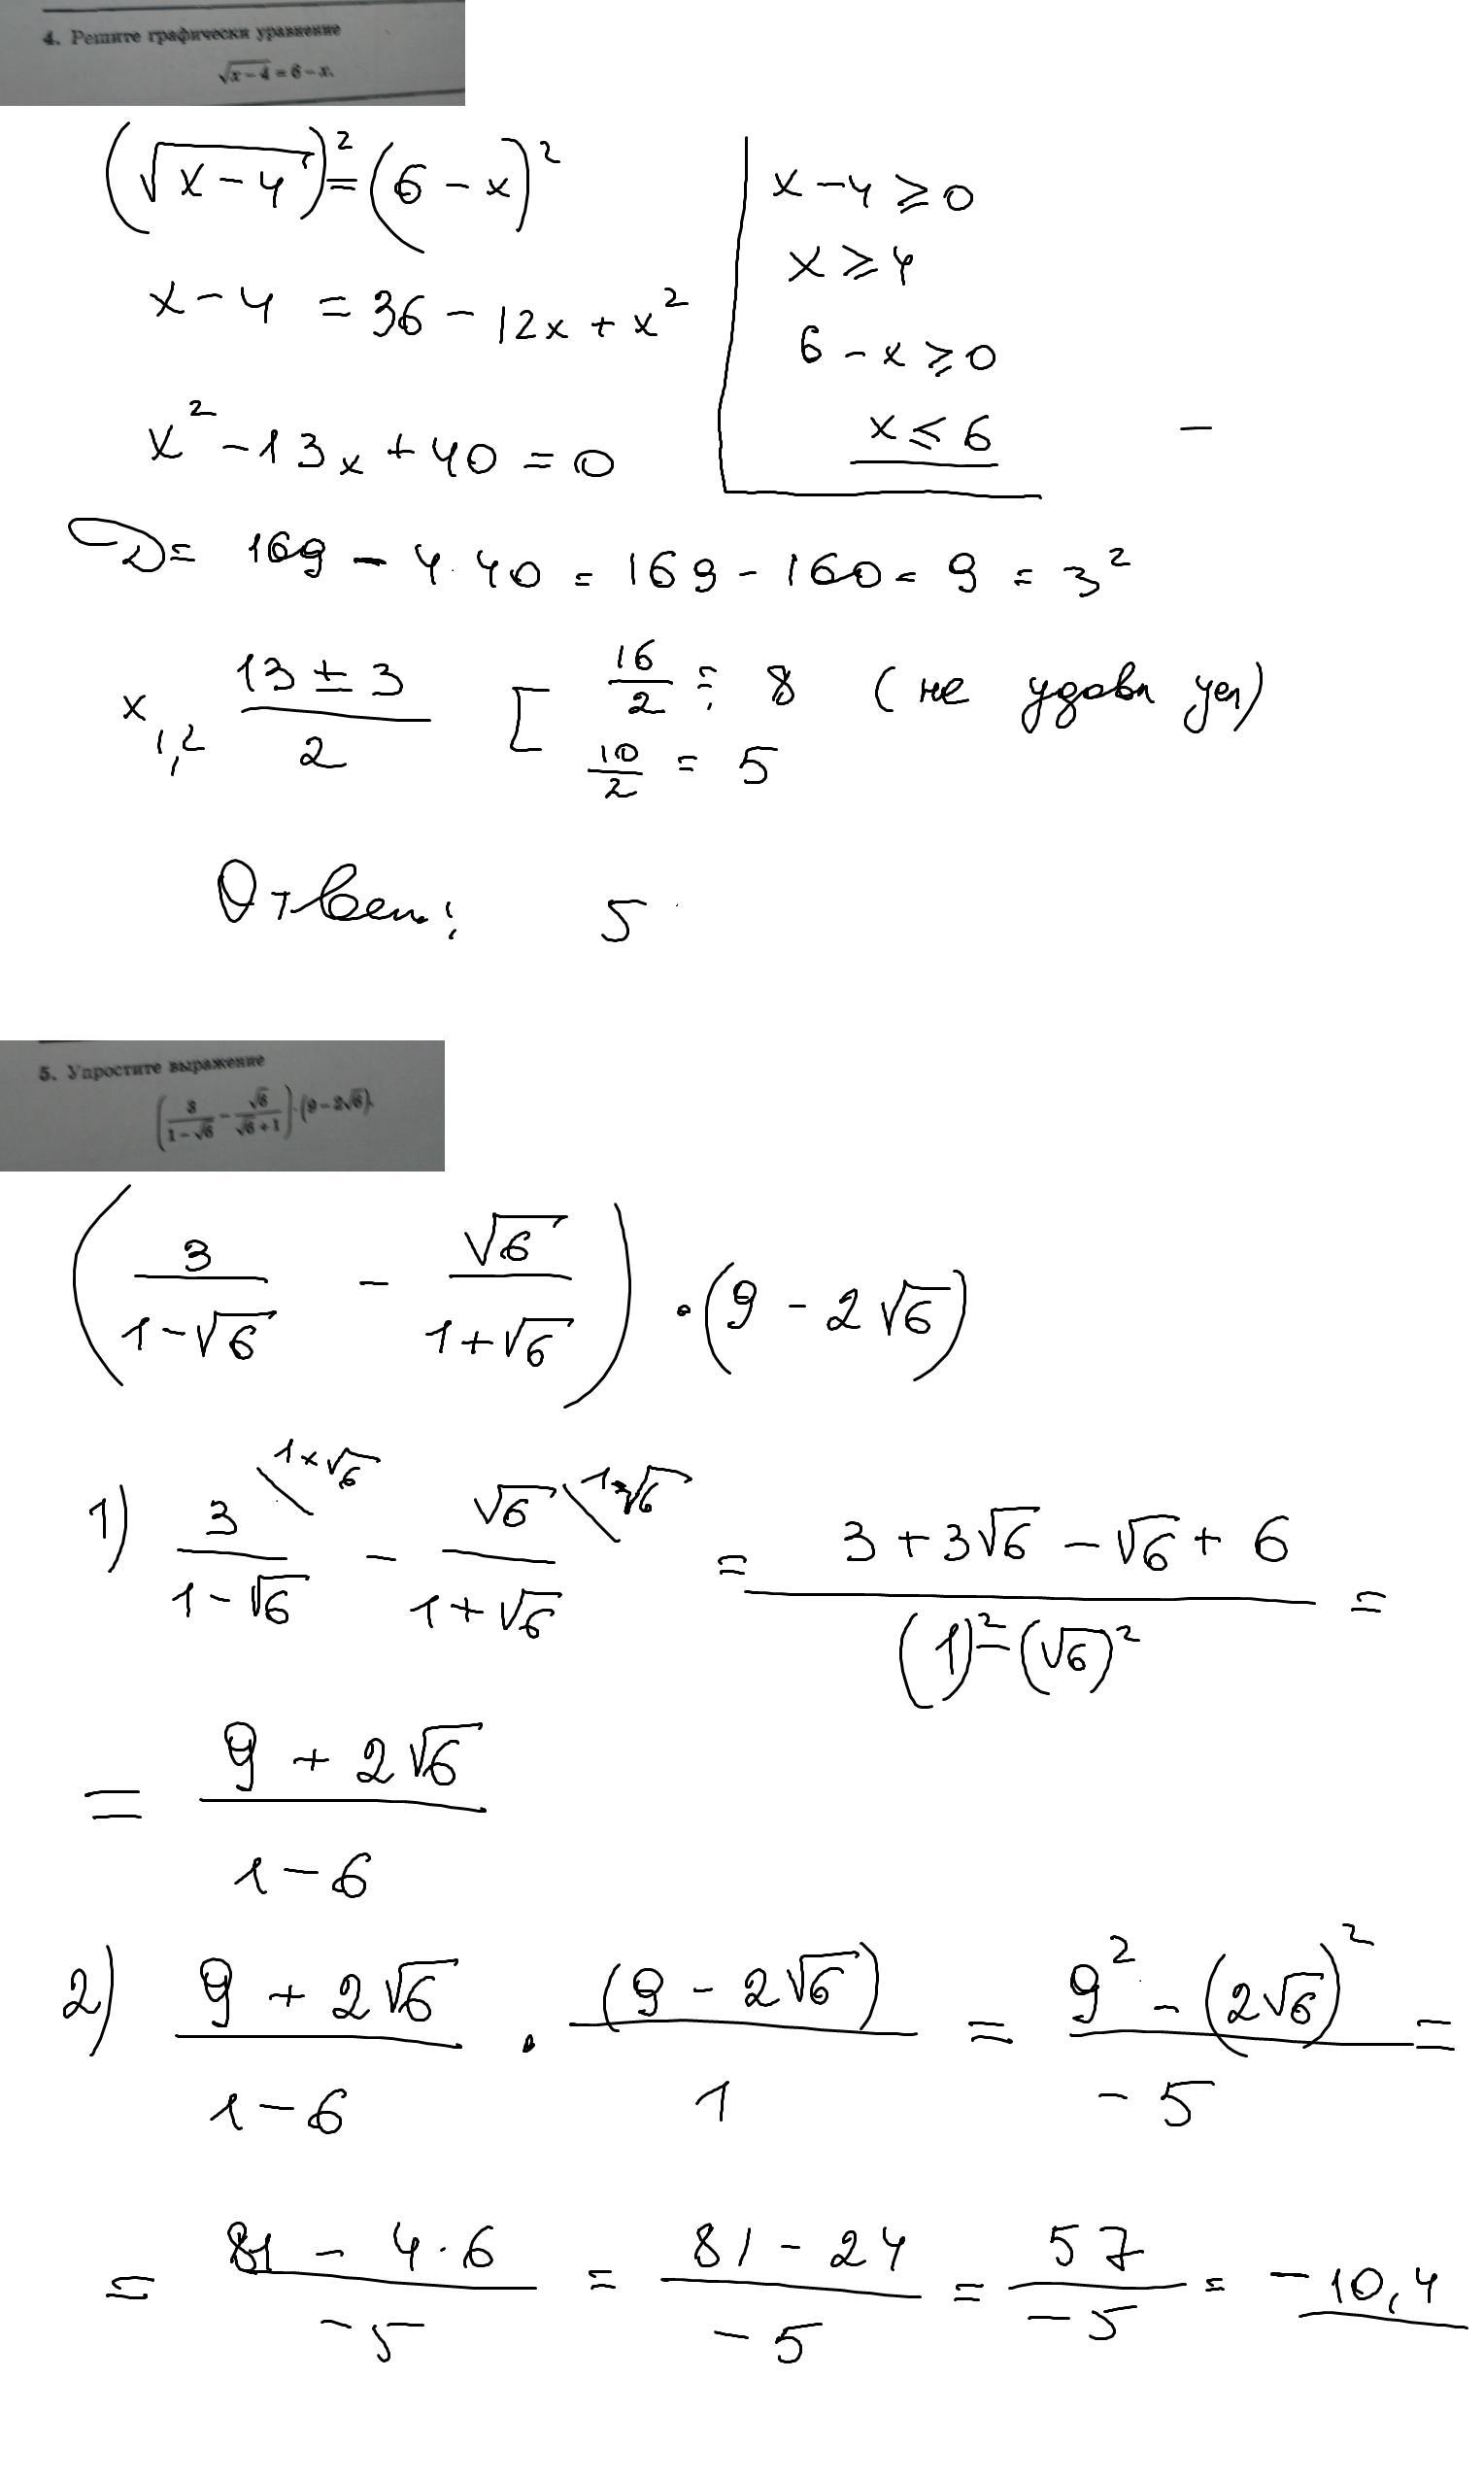 4. Решите графически уравнение
√(x−4) = 6 − x.
(√(x − 4))² = (6 − x)²
x − 4 = 36 − 12x + x²
x² − 13x + 40 = 0
x − 4 ⩾ 0
x ⩾ 4
6 − x ⩾ 0
x ⩽ 6
−
D = 169 − 4·40 = 169 − 160 = 9 = 3²
x₁,₂ (13 ± 3)/2 [ 16/2 = 8 (не удовл усл)
10/2 = 5
Ответ: 5
5. Упростите выражение
(3/(1−√6) − √6/(√6+1)) · (9 − 2√6).
(3/(1−√6) − √6/(1+√6)) · (9 − 2√6)
1) 3/(1−√6) \1+√6 − √6/(1+√6) \1−√6 = (3 + 3√6 − √6 + 6)/((1)² − (√6)²) =
= (9 + 2√6)/(1 − 6)
2) (9 + 2√6)/(1 − 6) · (9 − 2√6)/1 = (9² − (2√6)²)/(−5) =
= (81 − 4·6)/(−5) = (81 − 24)/(−5) = 57/(−5) = −10,4